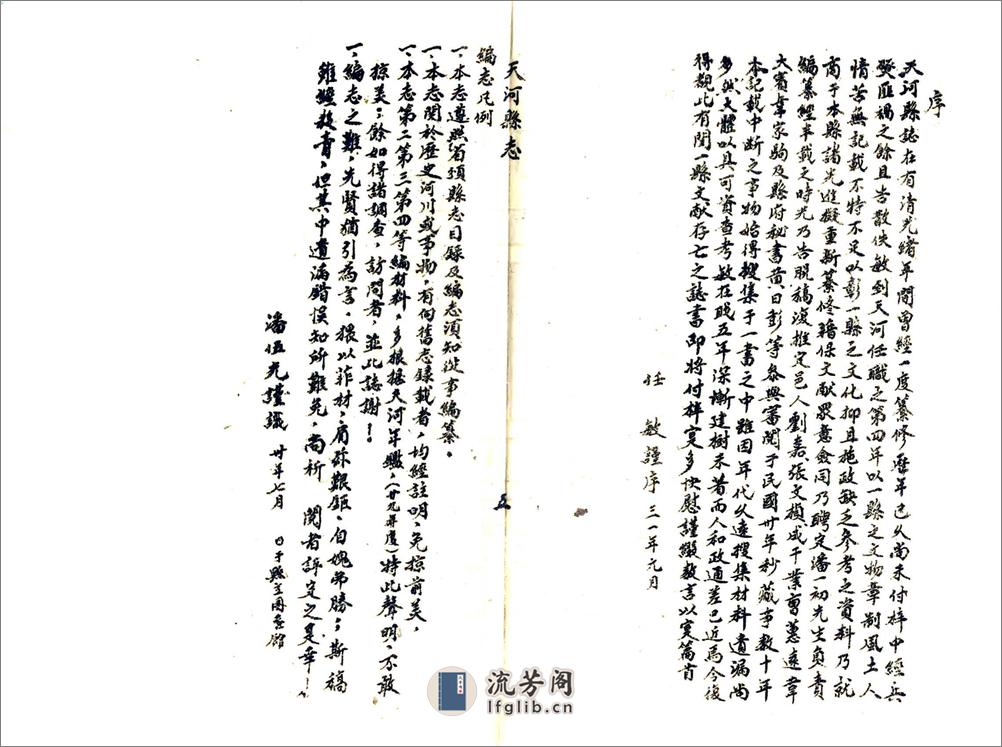 序
天河縣誌在有清光緒年間曾經一度纂修歷年已久尚未付梓中經兵
燹匪禍之餘且告散佚敏到天河任職之第四年以一縣之文物章制風土人
情苦無記載不特不足以彰一縣之文化抑且施政缺乏參考之資料乃就
商于本縣諸先進擬重新纂修籍保文献眾意僉同乃聘定潘一初先生負責
編纂經半載之時光乃告脫稿復推定邑人劉嘉張文楨成千業曾蕙遠韋
大賓韋家駒及縣府秘書黄日彭等參與審閱于民國卅年秒蕆事數十年
本記載中断之事物始得搜集于一書之中雖因年代久遠搜集材料遺漏尚
多然大體以具可資查考敏在職五年深慚建樹未著而人和政通差已近焉今後
得觀此有関一縣文献存亡之誌書即將付梓寔多快慰謹綴数言以寔篇首
任 敏謹序 三一年元月
天河縣志
五
編志凡例
一、本志遵照省頒縣志目錄及編志須知從事編纂。
一、本志関於歷史河川或事物，有向舊志錄載者，均經註明，免掠前美，
一、本志第二第三第四等編材料，多根據天河年鑑，（廿九年度）特此聲明，不敢
掠美；餘如得諸調查，訪問者，並此誌謝！
一、編志之難，先賢猶引為苦、猥以菲材，肩弥艱鉅、自媿弗勝；斯稿
雖經殺青，但其中遺漏錯悮知所難免，尚祈 閱者評定之是幸！
潘伍先謹識 卅年七月 日于縣立圖書館
流芳阁
lfglib.cn